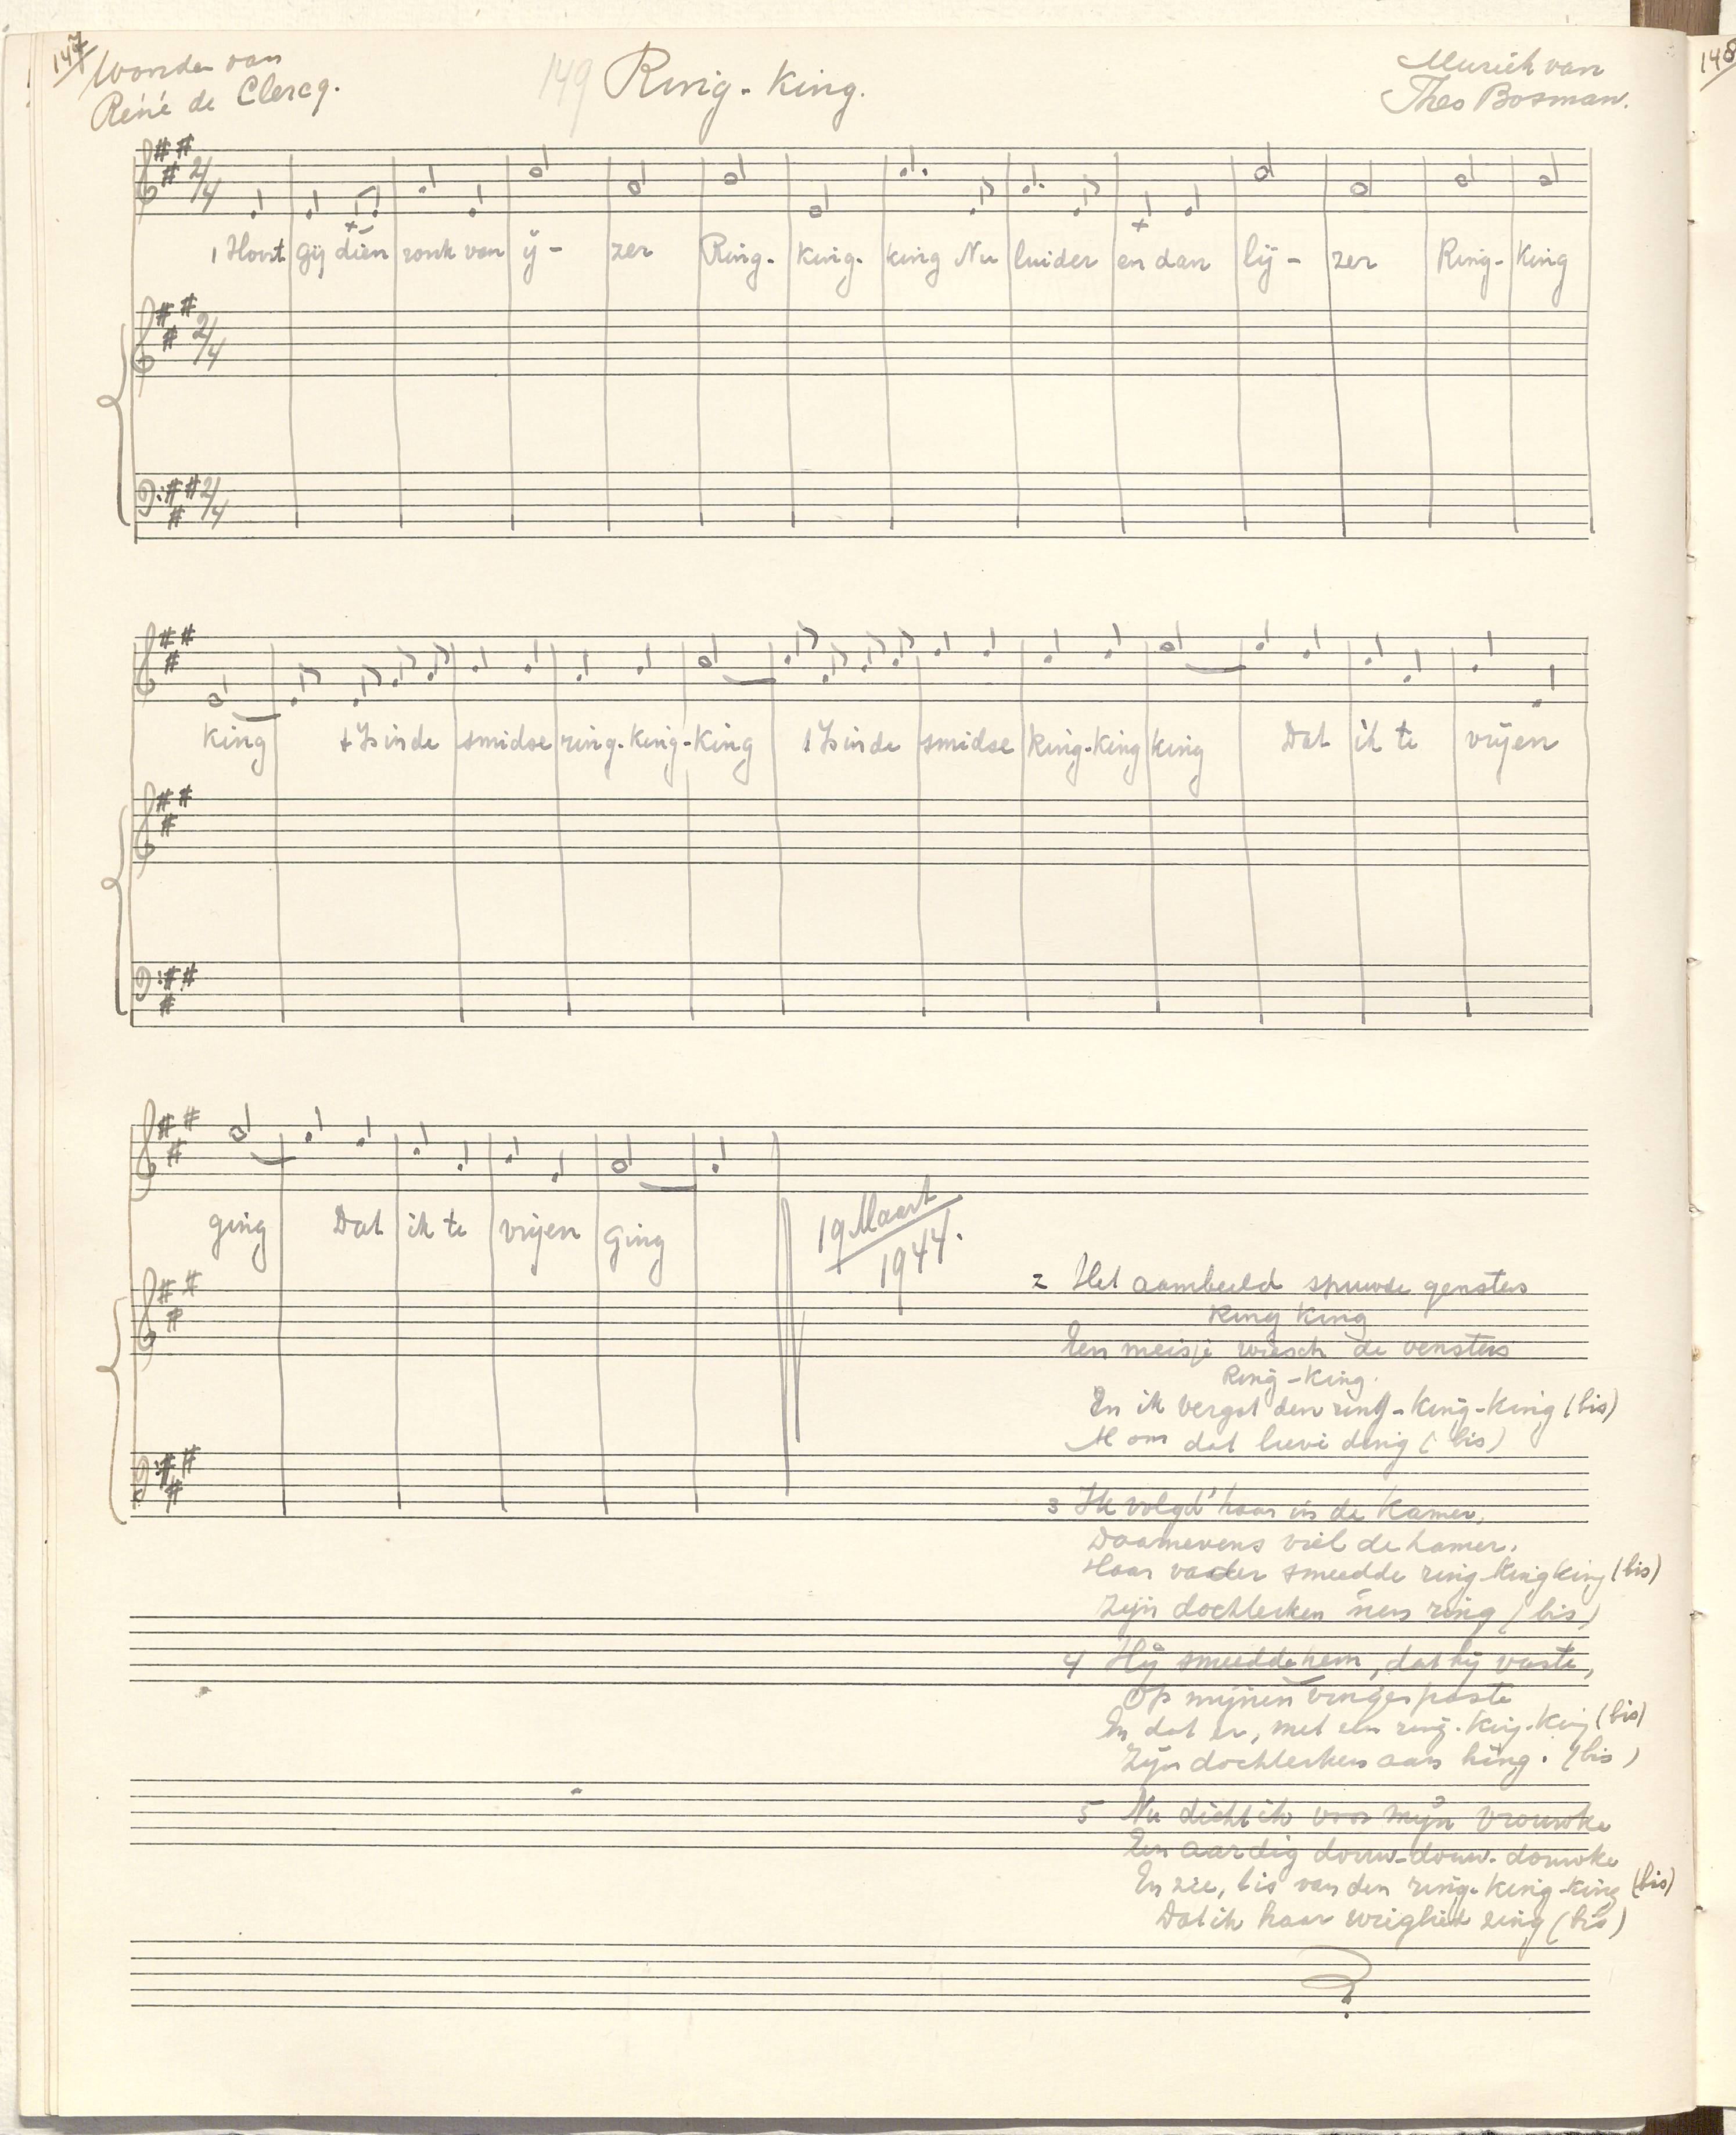 147
148
Woorden van
René de Clercq.
149 Ring-King.
Muziek van
Theo Bosman.
2/4
1 Hoort gij dien ronk van ij- zer Ring- king- king Nu luider en dan lij- zer Ring- King
2/4
2/4
King 't Is in de smidse ring-king-king 't Is in de smidse king-king king Dat ik te vrijen
ging Dat ik te vrijen ging
19 Maart
1944.
2 Het aambeeld spuwde gensters
King King
Een meisje wiesch de vensters
Ring-King.
En ik vergat den ring-king-king (bis)
Al om dat lieve ding (bis)
3 Ik volgd' haar in de kamer,
Daarnevens viel de hamer.
Haar vader smeedde ring-kingking (bis)
Zijn dochterken 'nen ring (bis)
4 Hij smeedde hem, dat hij vaste,
Op mijnen vinger paste
En dat er, met een ring-king-king (bis)
Zijn dochterken aan hing. (bis)
5 Nu dicht ik voor mijn vrouwke
Een aardig douw-douw-douwke
En zie, 't is van den ring-king-king (bis)
Dat ik haar wieglied zing (bis)